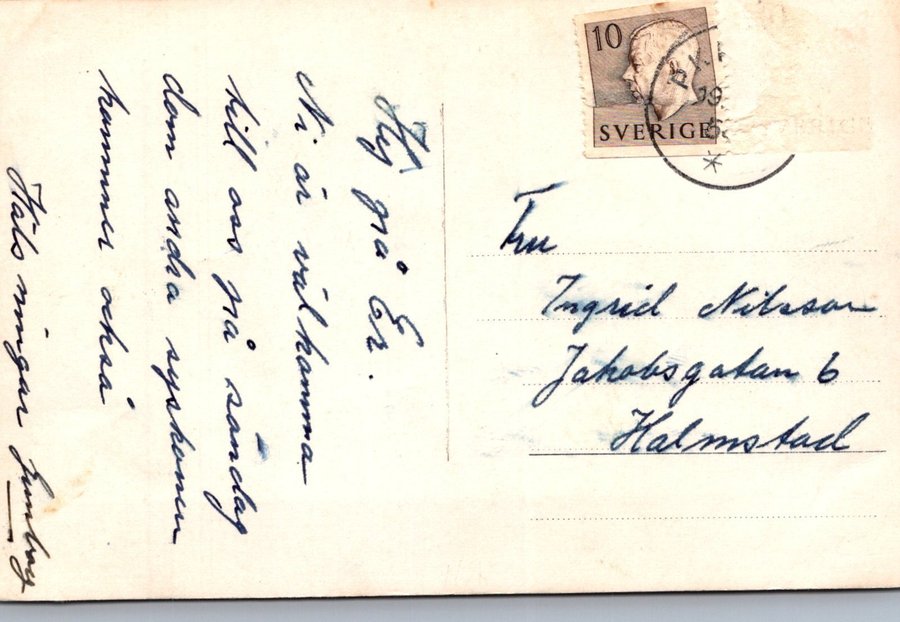 Hej på Er.
Ni är välkomna
till oss på söndag
dom andra syskonen
kommer också
Hälsningar
10
SVERIGE
Fru
Ingrid Nilsson
Jakobsgatan 6
Halmstad